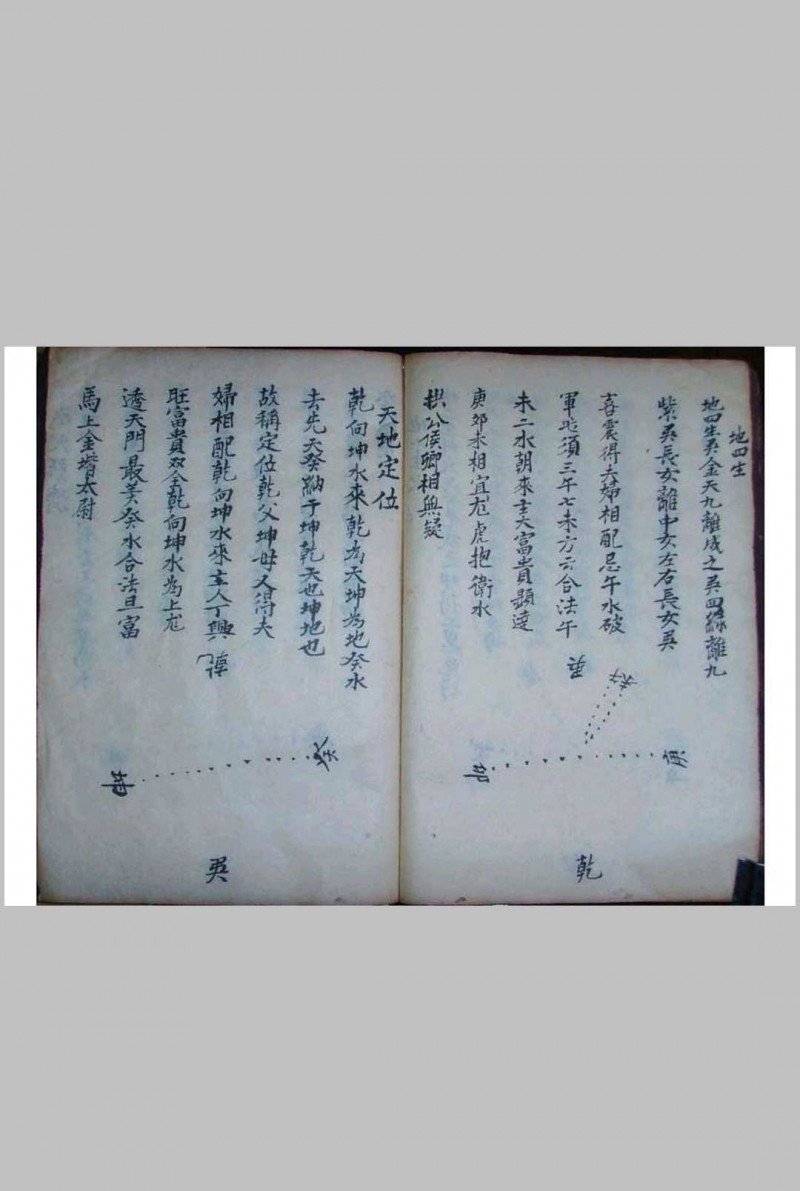 地四生
地四生巽金天九離成之巽四綠離九
紫巽長女離中女左右長女巽
喜震得夫婦相配忌午水破
軍必須三年七未方云合法午
未二水朝來主大富貴顯達
庚郊本相宜尨虎抱衛水
拱公侯卿相無疑
乾
天地定位
乾向坤水來乾為天坤為地癸水
去先天癸納于坤乾天也坤地也
故稱定位乾父坤母又得夫
婦相配乾向坤水來主人丁興
旺富貴双全乾向坤水為上尨
透天門最美癸水合法旦富
馬上金堦太尉
癸
巽